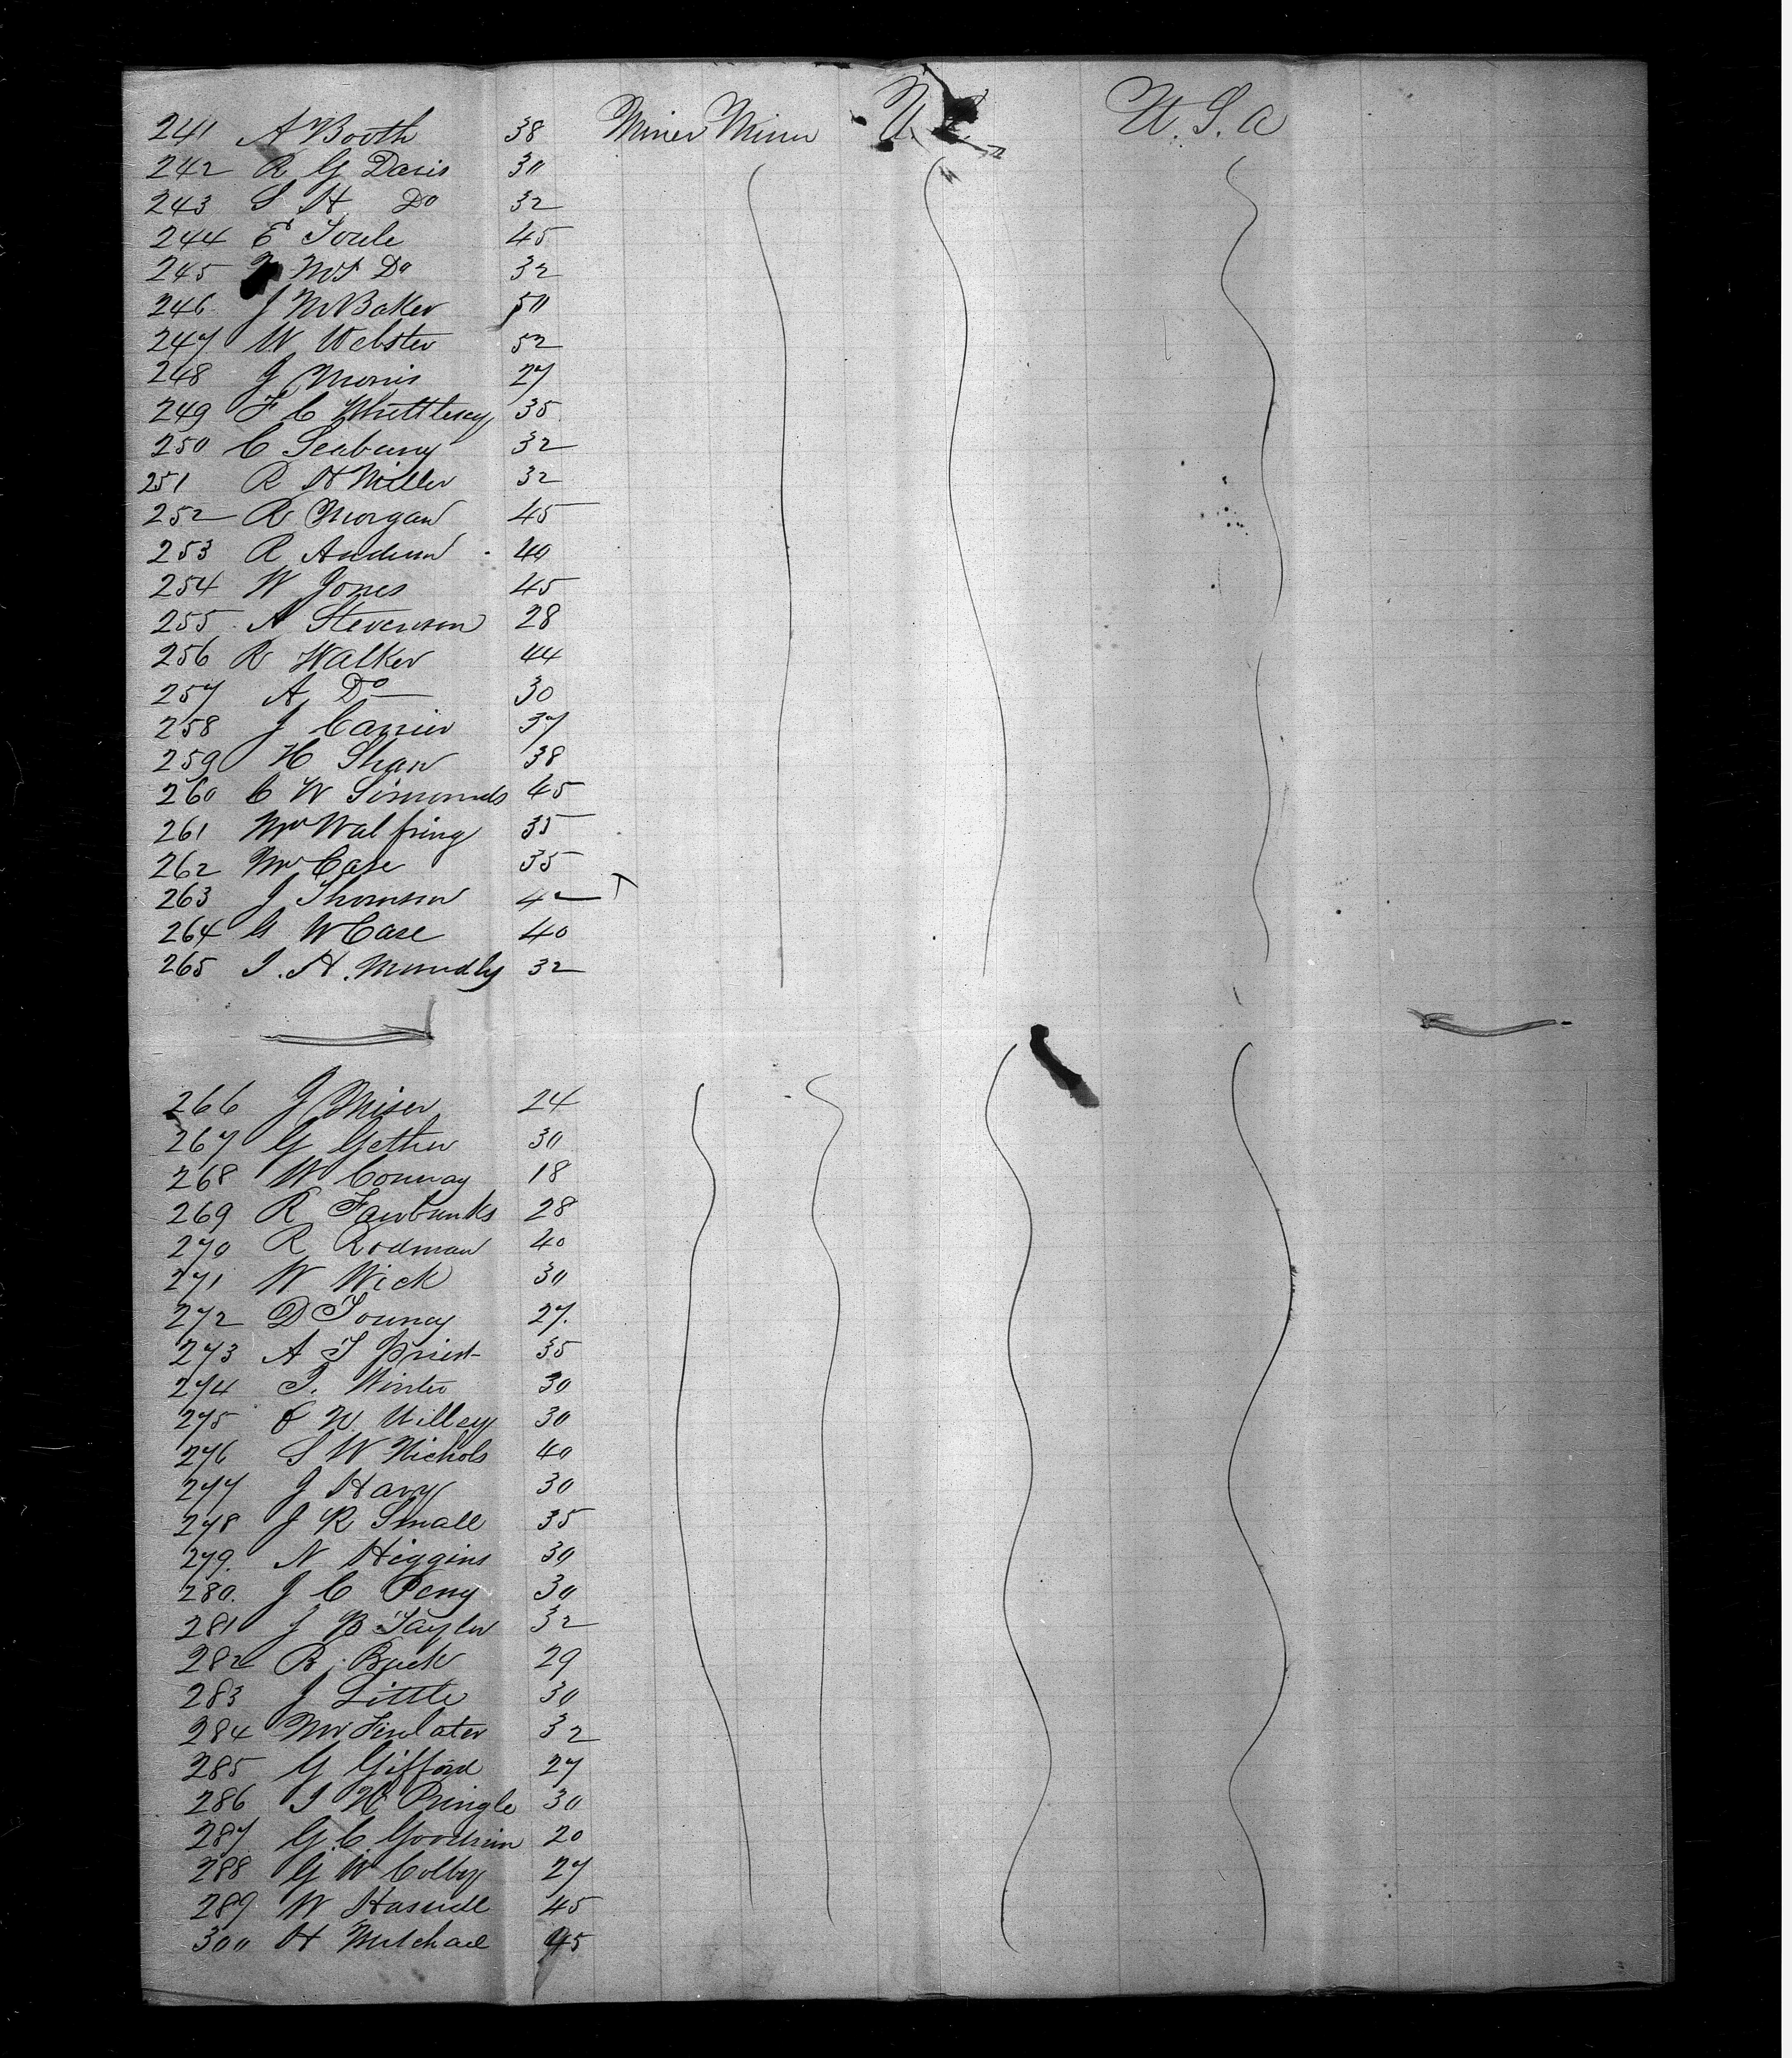 241 A Booth 38 Miner Minn U. S. U. S. A
242 R G Davis 30
243 S H Do 32
244 E Soule 45
245 Mrs Do 32
246 J M Baker 50
247 W Webster 52
248 J Morris 27
249 F C Whittlesey 35
250 C Seabury 32
251 R H Miller 32
252 R Morgan 45
253 R Anderson 40
254 W Jones 45
255 A Stevenson 28
256 R Walker 44
257 A Do 30
258 J Carrier 37
259 H Shaw 38
260 C W Simonds 45
261 Mr 35
262 Mr Case 35
263 J Thomson 42
264 G W Case 40
265 J. H. Mundly 32
266 J Miser 24
267 G Gether 30
268 W Conway 18
269 R Fairbanks 28
270 R Rodman 40
271 W Wick 30
272 D Young 27.
273 A J Priest 35
274 J. Winter 30
275 W Willey 30
276 S W Nichols 40
277 J Harvy 30
278 J R Small 35
279. N Higgins 30
280. J C Perry 30
281 J B Taylor 32
282 R. Buck 29
283 J Little 30
284 Mr Finlater 32
285 G Gifford 27
286 J H Pringle 30
287 G. C Goodwin 20
288 G W Colby 27
289 W Haswell 45
300 H Mitchael 45